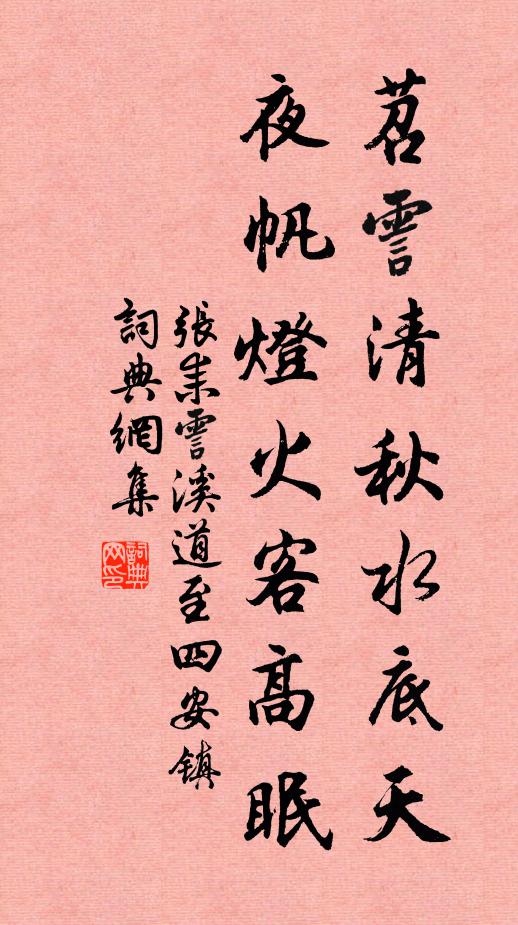 苕霅清秋水底天
夜帆燈火客高眠
張耒霅溪道至四安鎮
詞典網集
詞典网印